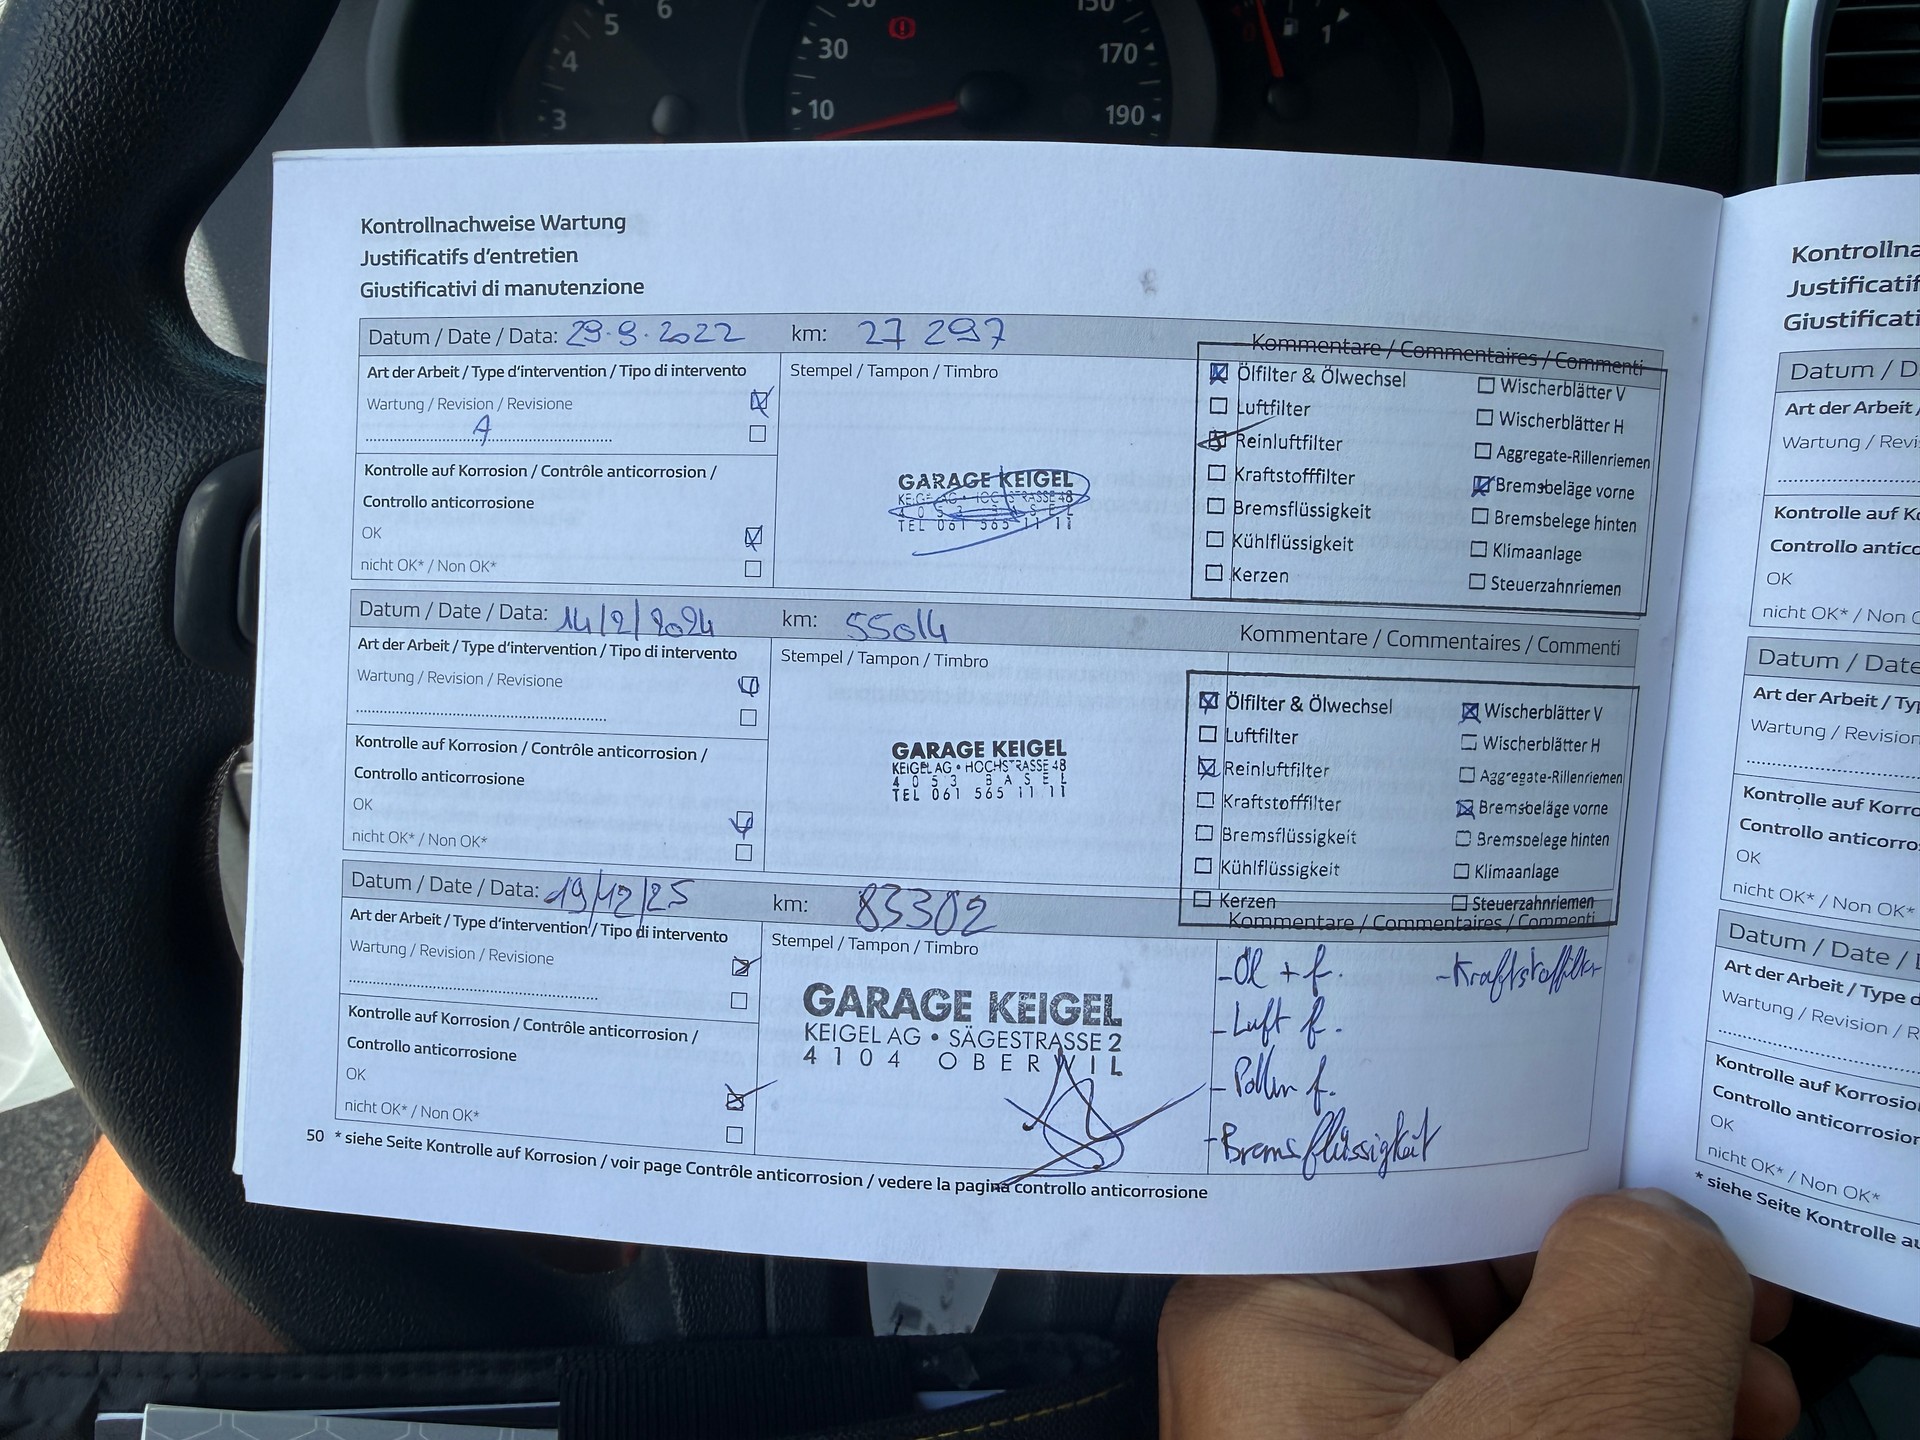 5
6
4
3
30
10
150
170
190
1
Kontrollnachweise Wartung
Justificatifs d'entretien
Giustificativi di manutenzione
Datum / Date / Data: 29.9.2022 km: 27 297 Kommentare / Commentaires / Commenti
Art der Arbeit / Type d'intervention / Tipo di intervento
Wartung / Revision / Revisione
A
Kontrolle auf Korrosion / Contrôle anticorrosion /
Controllo anticorrosione
OK
nicht OK* / Non OK*
Stempel / Tampon / Timbro
GARAGE KEIGEL
KEIGEL AG • HOCHSTRASSE 48
4053 BASEL
TEL 061 565 11 11
Ölfilter & Ölwechsel
Luftfilter
Reinluftfilter
Kraftstofffilter
Bremsflüssigkeit
Kühlflüssigkeit
Kerzen
Wischerblätter V
Wischerblätter H
Aggregate-Rillenriemen
Bremsbeläge vorne
Bremsbelege hinten
Klimaanlage
Steuerzahnriemen
Datum / Date / Data: 14/2/2024 km: 55014 Kommentare / Commentaires / Commenti
Art der Arbeit / Type d'intervention / Tipo di intervento
Wartung / Revision / Revisione
Kontrolle auf Korrosion / Contrôle anticorrosion /
Controllo anticorrosione
OK
nicht OK* / Non OK*
Stempel / Tampon / Timbro
GARAGE KEIGEL
KEIGEL AG • HOCHSTRASSE 48
4053 BASEL
TEL 061 565 11 11
Ölfilter & Ölwechsel
Luftfilter
Reinluftfilter
Kraftstofffilter
Bremsflüssigkeit
Kühlflüssigkeit
Kerzen
Wischerblätter V
Wischerblätter H
Aggregate-Rillenriemen
Bremsbeläge vorne
Bremsbelege hinten
Klimaanlage
Steuerzahnriemen
Datum / Date / Data: 19/12/25 km: 83302 Kommentare / Commentaires / Commenti
Art der Arbeit / Type d'intervention / Tipo di intervento
Wartung / Revision / Revisione
Kontrolle auf Korrosion / Contrôle anticorrosion /
Controllo anticorrosione
OK
nicht OK* / Non OK*
Stempel / Tampon / Timbro
GARAGE KEIGEL
KEIGEL AG • SÄGESTRASSE 2
4104 OBERWIL
- Öl + f. - Kraftstoffilter
- Luft f.
- Pollen f.
- Bremsflüssigkeit
50 * siehe Seite Kontrolle auf Korrosion / voir page Contrôle anticorrosion / vedere la pagina controllo anticorrosione
Kontrollna
Justificatif
Giustificati
Datum / D
Art der Arbeit /
Wartung / Revi
Kontrolle auf Ko
Controllo antico
OK
nicht OK* / Non O
Datum / Date
Art der Arbeit / Ty
Wartung / Revision
Kontrolle auf Korro
Controllo anticorro
OK
nicht OK* / Non OK*
Datum / Date /
Art der Arbeit / Type d
Wartung / Revision / R
Kontrolle auf Korrosio
Controllo anticorrosion
OK
nicht OK* / Non OK*
* siehe Seite Kontrolle au